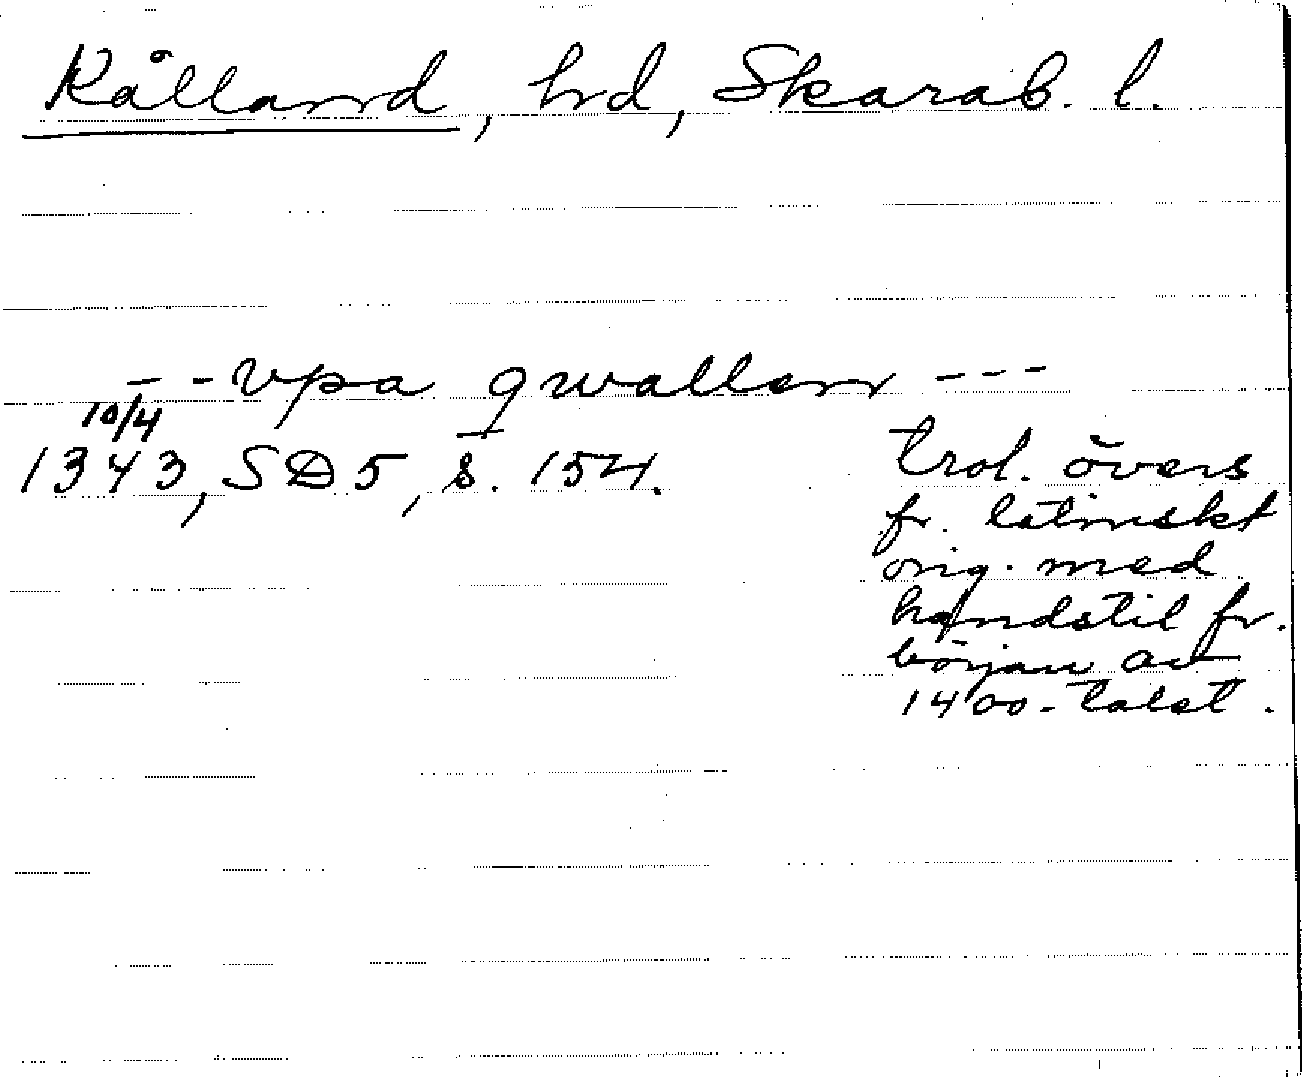 Kålland, hd, Skarab. l.
- - vpa qwallen - - -
10/4
1343, SD5, s. 154.
trol. övers
fr. latinskt
orig. med
handstil fr.
början av
1400-talet.